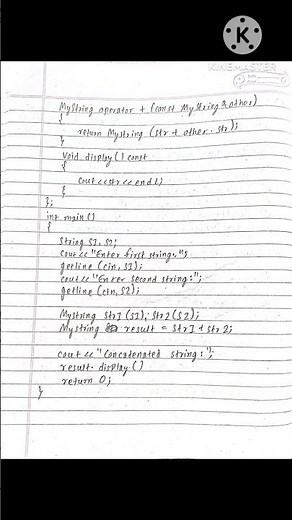 K
KINEMASTER
MyString operator + (const MyString & other)
{
return Mystring (str + other. str);
}
Void display () const
{
Cout<<str<<endl;
}
};
int main ()
{
String S1, S2;
Cout<< "Enter first string:";
getline (cin, S1);
cout<< "Enter second string:";
getline (cin, S2);
Mystring Str1 (S1), Str2 (S2);
Mystring result = Str1 + str2;
cout << "Concatenated string:";
result. display ()
return 0;
}